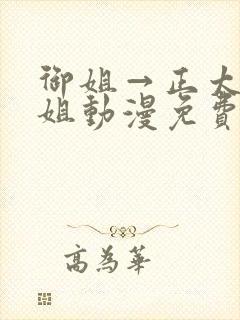 御姐→正太
姐動漫免費
高為華